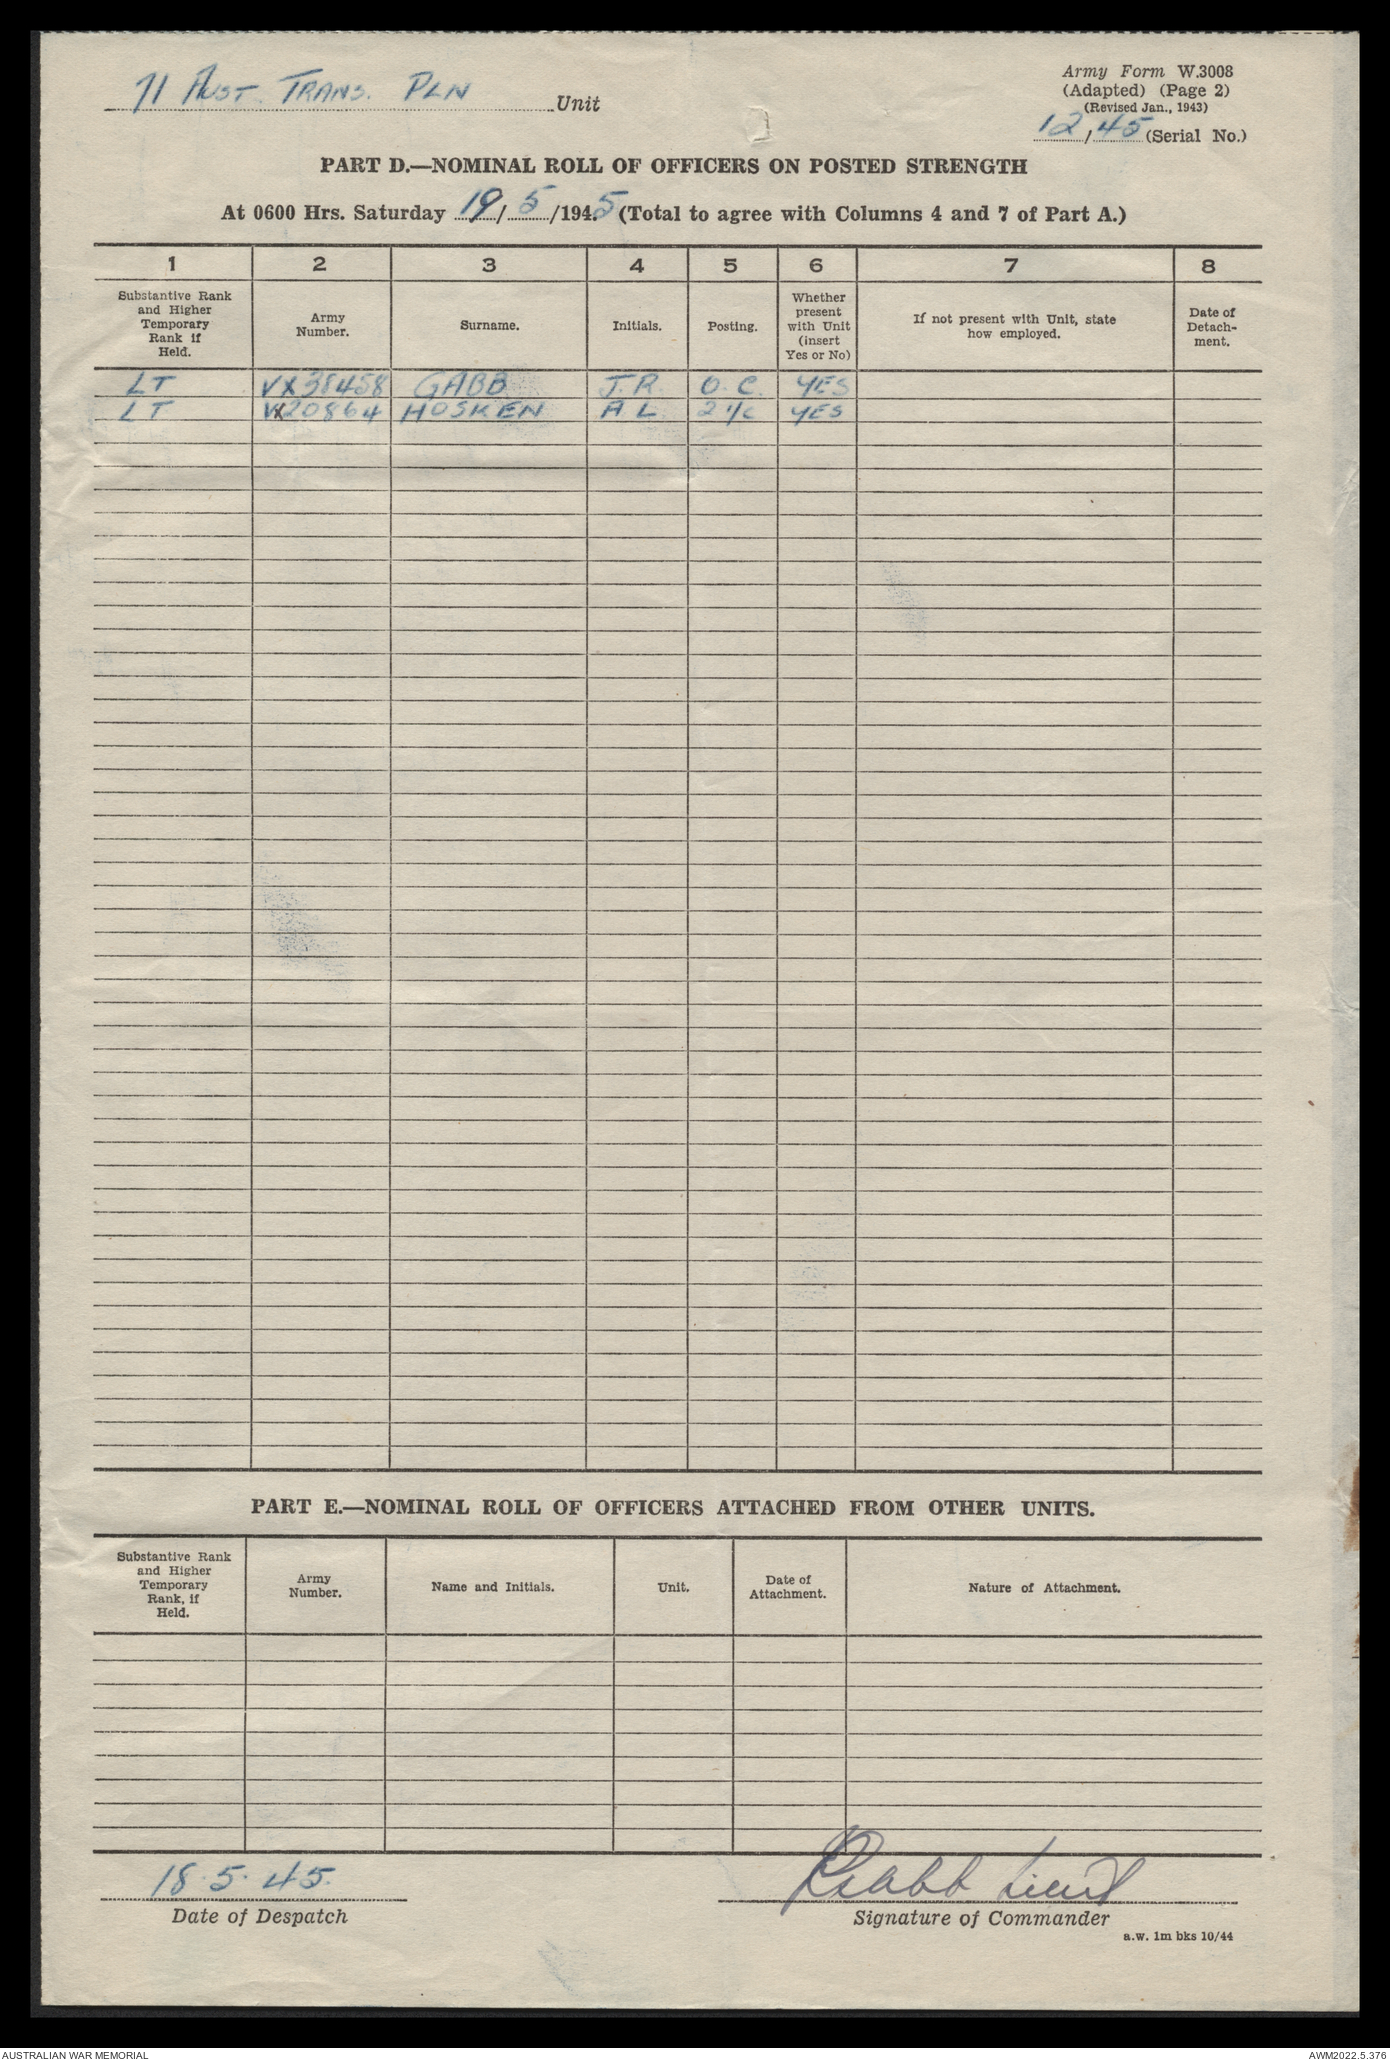 71 Aust. Trans. Pln Unit
Army Form W.3008
(Adapted) (Page 2)
(Revised Jan., 1943)
12/45 (Serial No.)
PART D.—NOMINAL ROLL OF OFFICERS ON POSTED STRENGTH
At 0600 Hrs. Saturday 19/5/1945 (Total to agree with Columns 4 and 7 of Part A.)
1 2 3 4 5 6 7 8
Substantive Rank and Higher Temporary Rank if Held. Army Number. Surname. Initials. Posting. Whether present with Unit (insert Yes or No) If not present with Unit, state how employed. Date of Detach-ment.
LT VX38458 GABB J.R. O.C. YES
LT VX20864 HOSKEN A L 2 i/c YES
PART E.—NOMINAL ROLL OF OFFICERS ATTACHED FROM OTHER UNITS.
Substantive Rank and Higher Temporary Rank, if Held. Army Number. Name and Initials. Unit. Date of Attachment. Nature of Attachment.
18.5.45.
Date of Despatch
Gabb Lieut
Signature of Commander
a.w. 1m bks 10/44
AUSTRALIAN WAR MEMORIAL
AWM2022.5.376